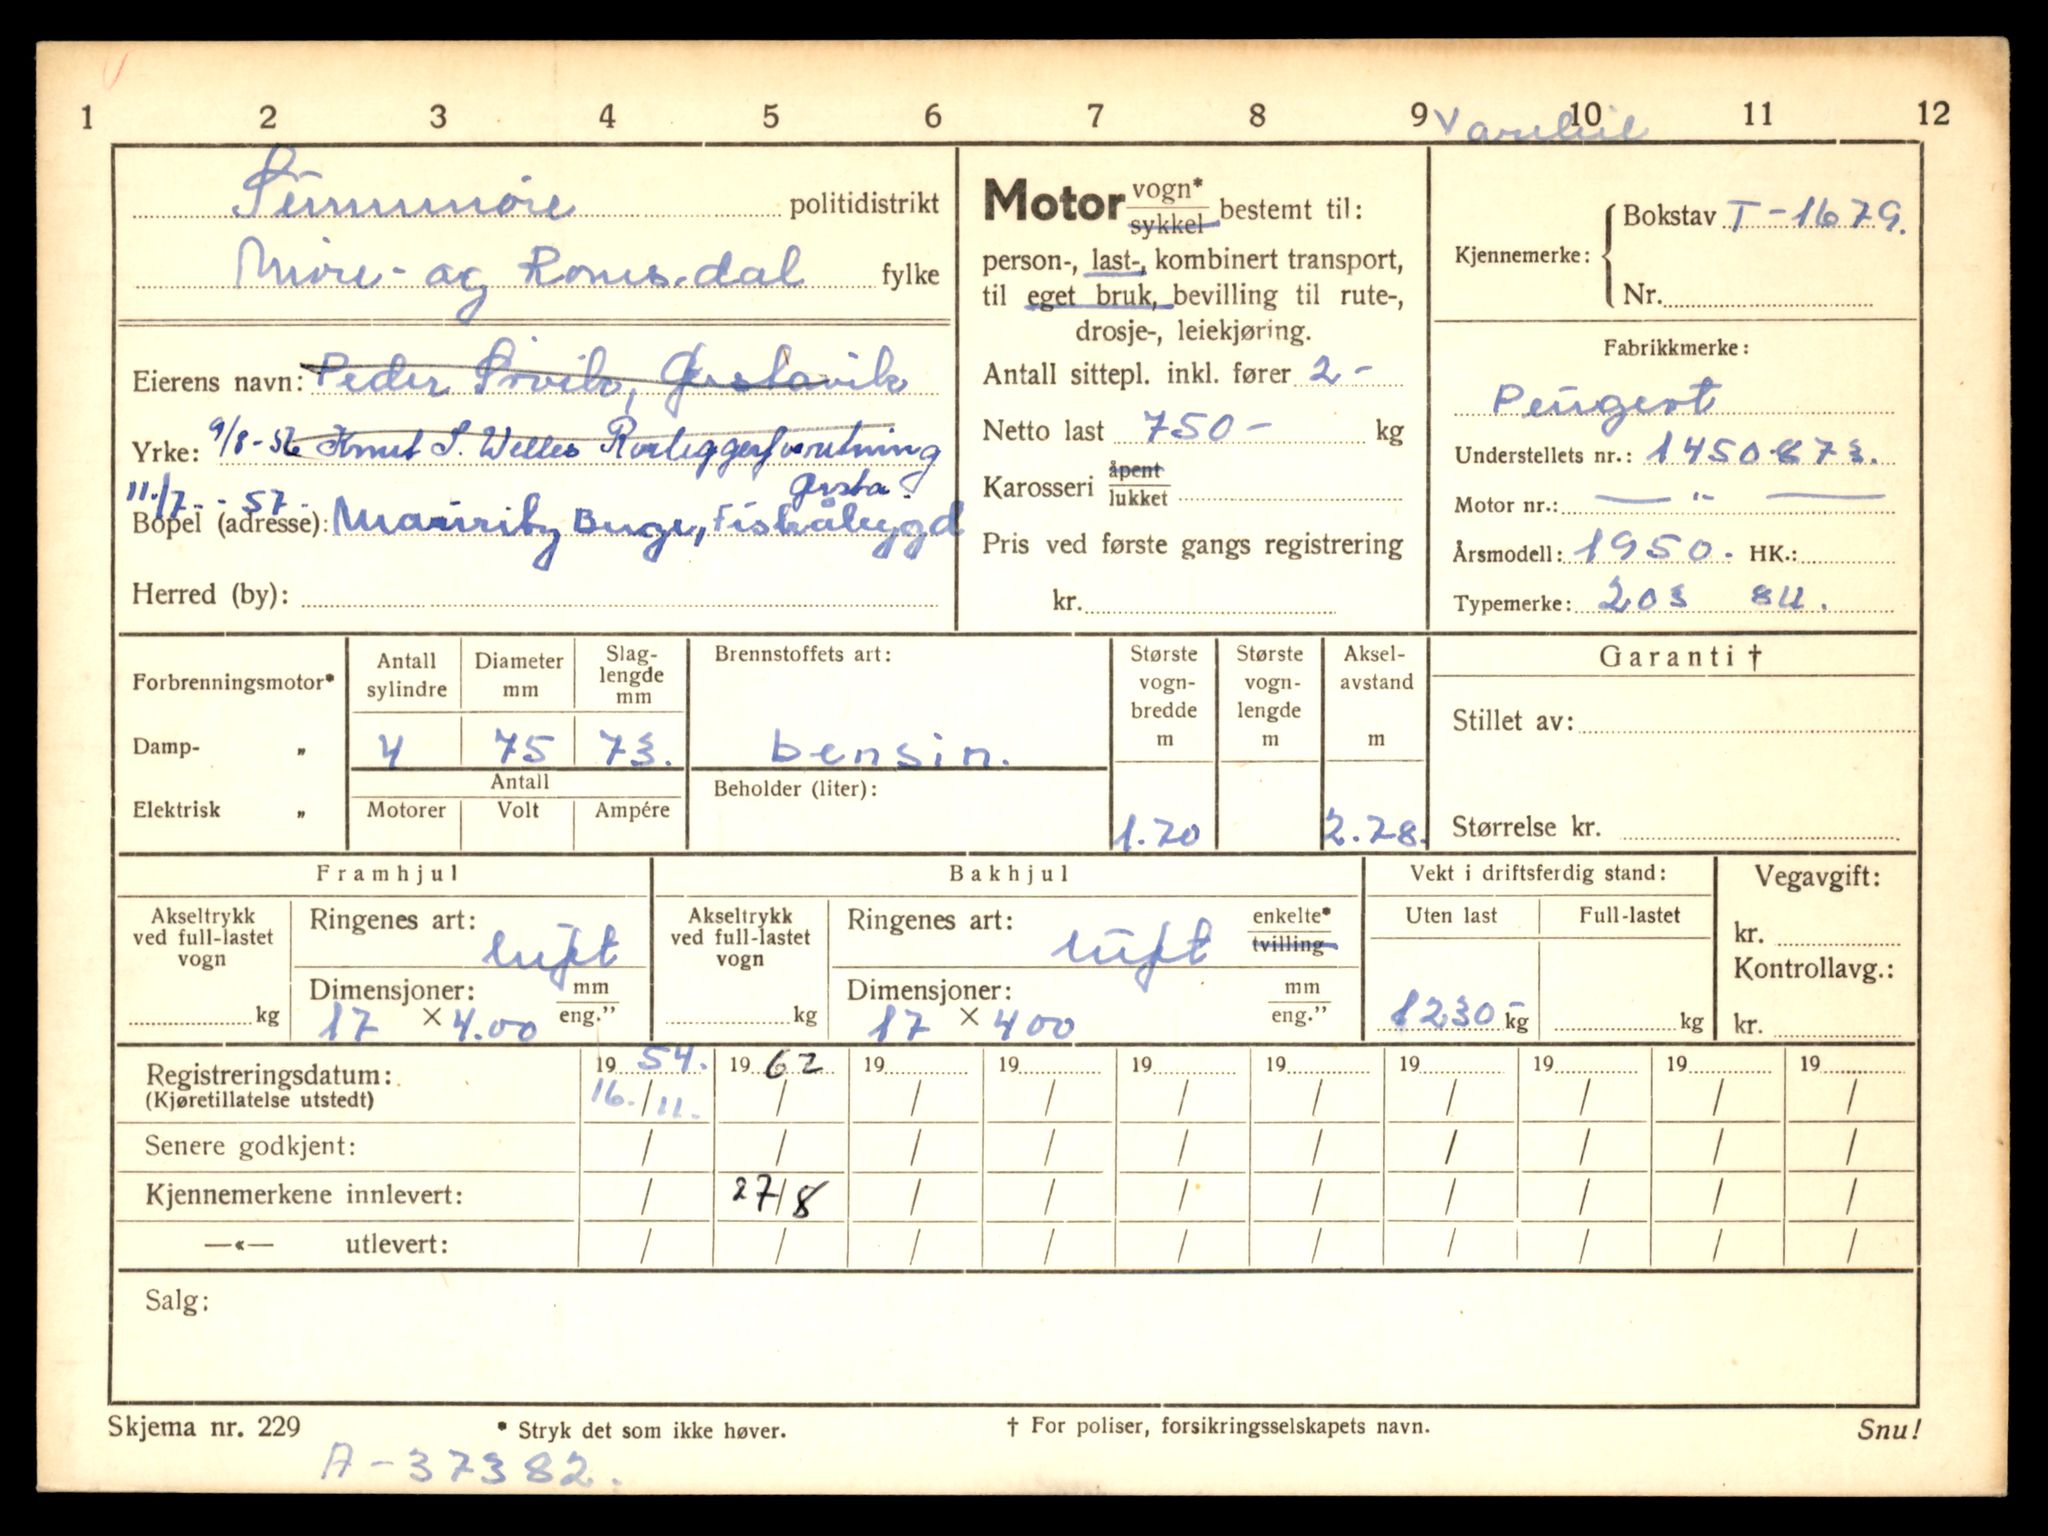 1 2 3 4 5 6 7 8 9 10 11 12
Varebil
Sunnmøre politidistrikt
Møre- og Romsdal fylke
Eierens navn: Peder
Yrke: 9/8-56 Knut S. Welle Rørleggerforretning
Ørsta.
11./7. - 57.
Bopel (adresse): Mauritz Buge, Fiskåbygd
Herred (by):
Motor vogn* / sykkel bestemt til:
person-, last-, kombinert transport,
til eget bruk, bevilling til rute-,
drosje-, leiekjøring.
Antall sittepl. inkl. fører 2 -
Netto last 750 - kg
Karosseri åpent / lukket
Pris ved første gangs registrering
kr.
Kjennemerke: Bokstav T-1679.
Nr.
Fabrikkmerke:
Peugeot
Understellets nr.: 1450873.
Motor nr.: — " —
Årsmodell: 1950. HK.:
Typemerke: 203 8U.
Forbrenningsmotor*
Damp- „
Elektrisk „
Antall sylindre 4
Diameter mm 75
Slag-
lengde
mm
73.
Antall
Motorer Volt Ampére
Brennstoffets art:
bensin.
Beholder (liter):
Største
vogn-
bredde
m
1.70
Største
vogn-
lengde
m
Aksel-
avstand
m
2.78.
Garanti †
Stillet av:
Størrelse kr.
Framhjul
Akseltrykk
ved full-lastet
vogn
kg
Ringenes art: luft
Dimensjoner: mm / eng.”
17 × 4.00
Bakhjul
Akseltrykk
ved full-lastet
vogn
kg
Ringenes art: luft enkelte* / tvilling
Dimensjoner: mm / eng.”
17 × 400
Vekt i driftsferdig stand:
Uten last Full-lastet
1230- kg kg
Vegavgift:
kr.
Kontrollavg.:
kr.
Registreringsdatum: 19 54. 19 62 19 19 19 19 19 19 19 19
(Kjøretillatelse utstedt) 16./11. / / / / / / / / /
Senere godkjent: / / / / / / / / / /
Kjennemerkene innlevert: / 27/8 / / / / / / / /
—«— utlevert: / / / / / / / / / /
Salg:
Skjema nr. 229 * Stryk det som ikke høver. † For poliser, forsikringsselskapets navn. Snu!
A-37382.